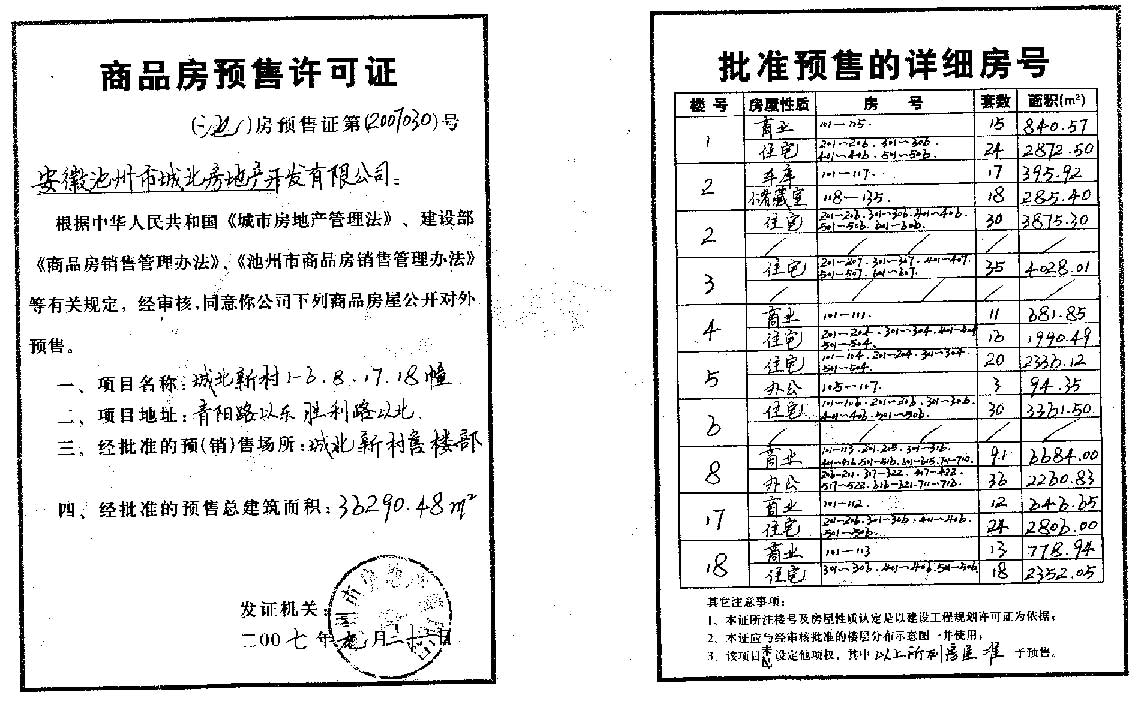 商品房预售许可证
房预售证第(2007030)号
安徽池州市城北房地产开发有限公司:
根据中华人民共和国《城市房地产管理法》、建设部
《商品房销售管理办法》、《池州市商品房销售管理办法》
等有关规定，经审核，同意你公司下列商品房屋公开对外
预售。
一、项目名称:城北新村1-6.8.17.18幢
二、项目地址:青阳路以东胜利路以北
三、经批准的预(销)售场所:城北新村售楼部
四、经批准的预售总建筑面积:36290.48m²
发证机关:
二00七年九月二十六日
批准预售的详细房号
楼号 房屋性质 房号 套数 面积(m²)
1 商业 101-115. 15 840.57
住宅 201-206.301-306. 401-406.501-506. 24 2872.50
2 车库 101-117. 17 395.92
储藏室 118-135. 18 285.40
2 住宅 201-206.301-306.401-406. 501-506.601-606. 30 3875.30
3 住宅 201-207.301-307.401-407. 501-507.601-607. 35 4028.01
4 商业 101-111. 11 681.85
住宅 201-204.301-304.401-404 501-504. 16 1990.49
5 住宅 101-104.201-204.301-304 501-504. 20 2336.12
办公 105-107. 3 94.35
6 住宅 101-106.201-206.301-306. 401-406.501-506. 30 3361.50
8 商业 91 6684.00
办公 36 2260.83
17 商业 101-112. 12 646.65
住宅 201-206.301-306.401-406. 501-506. 24 2806.00
18 商业 101-113 13 778.94
住宅 301-306.401-406.501-506 18 2352.05
其它注意事项:
1、本证所注楼号及房屋性质认定是以建设工程规划许可证为依据;
2、本证应与经审核批准的楼层分布示意图一并使用;
3、该项目未设定他项权，其中以上所列房屋准予预售。